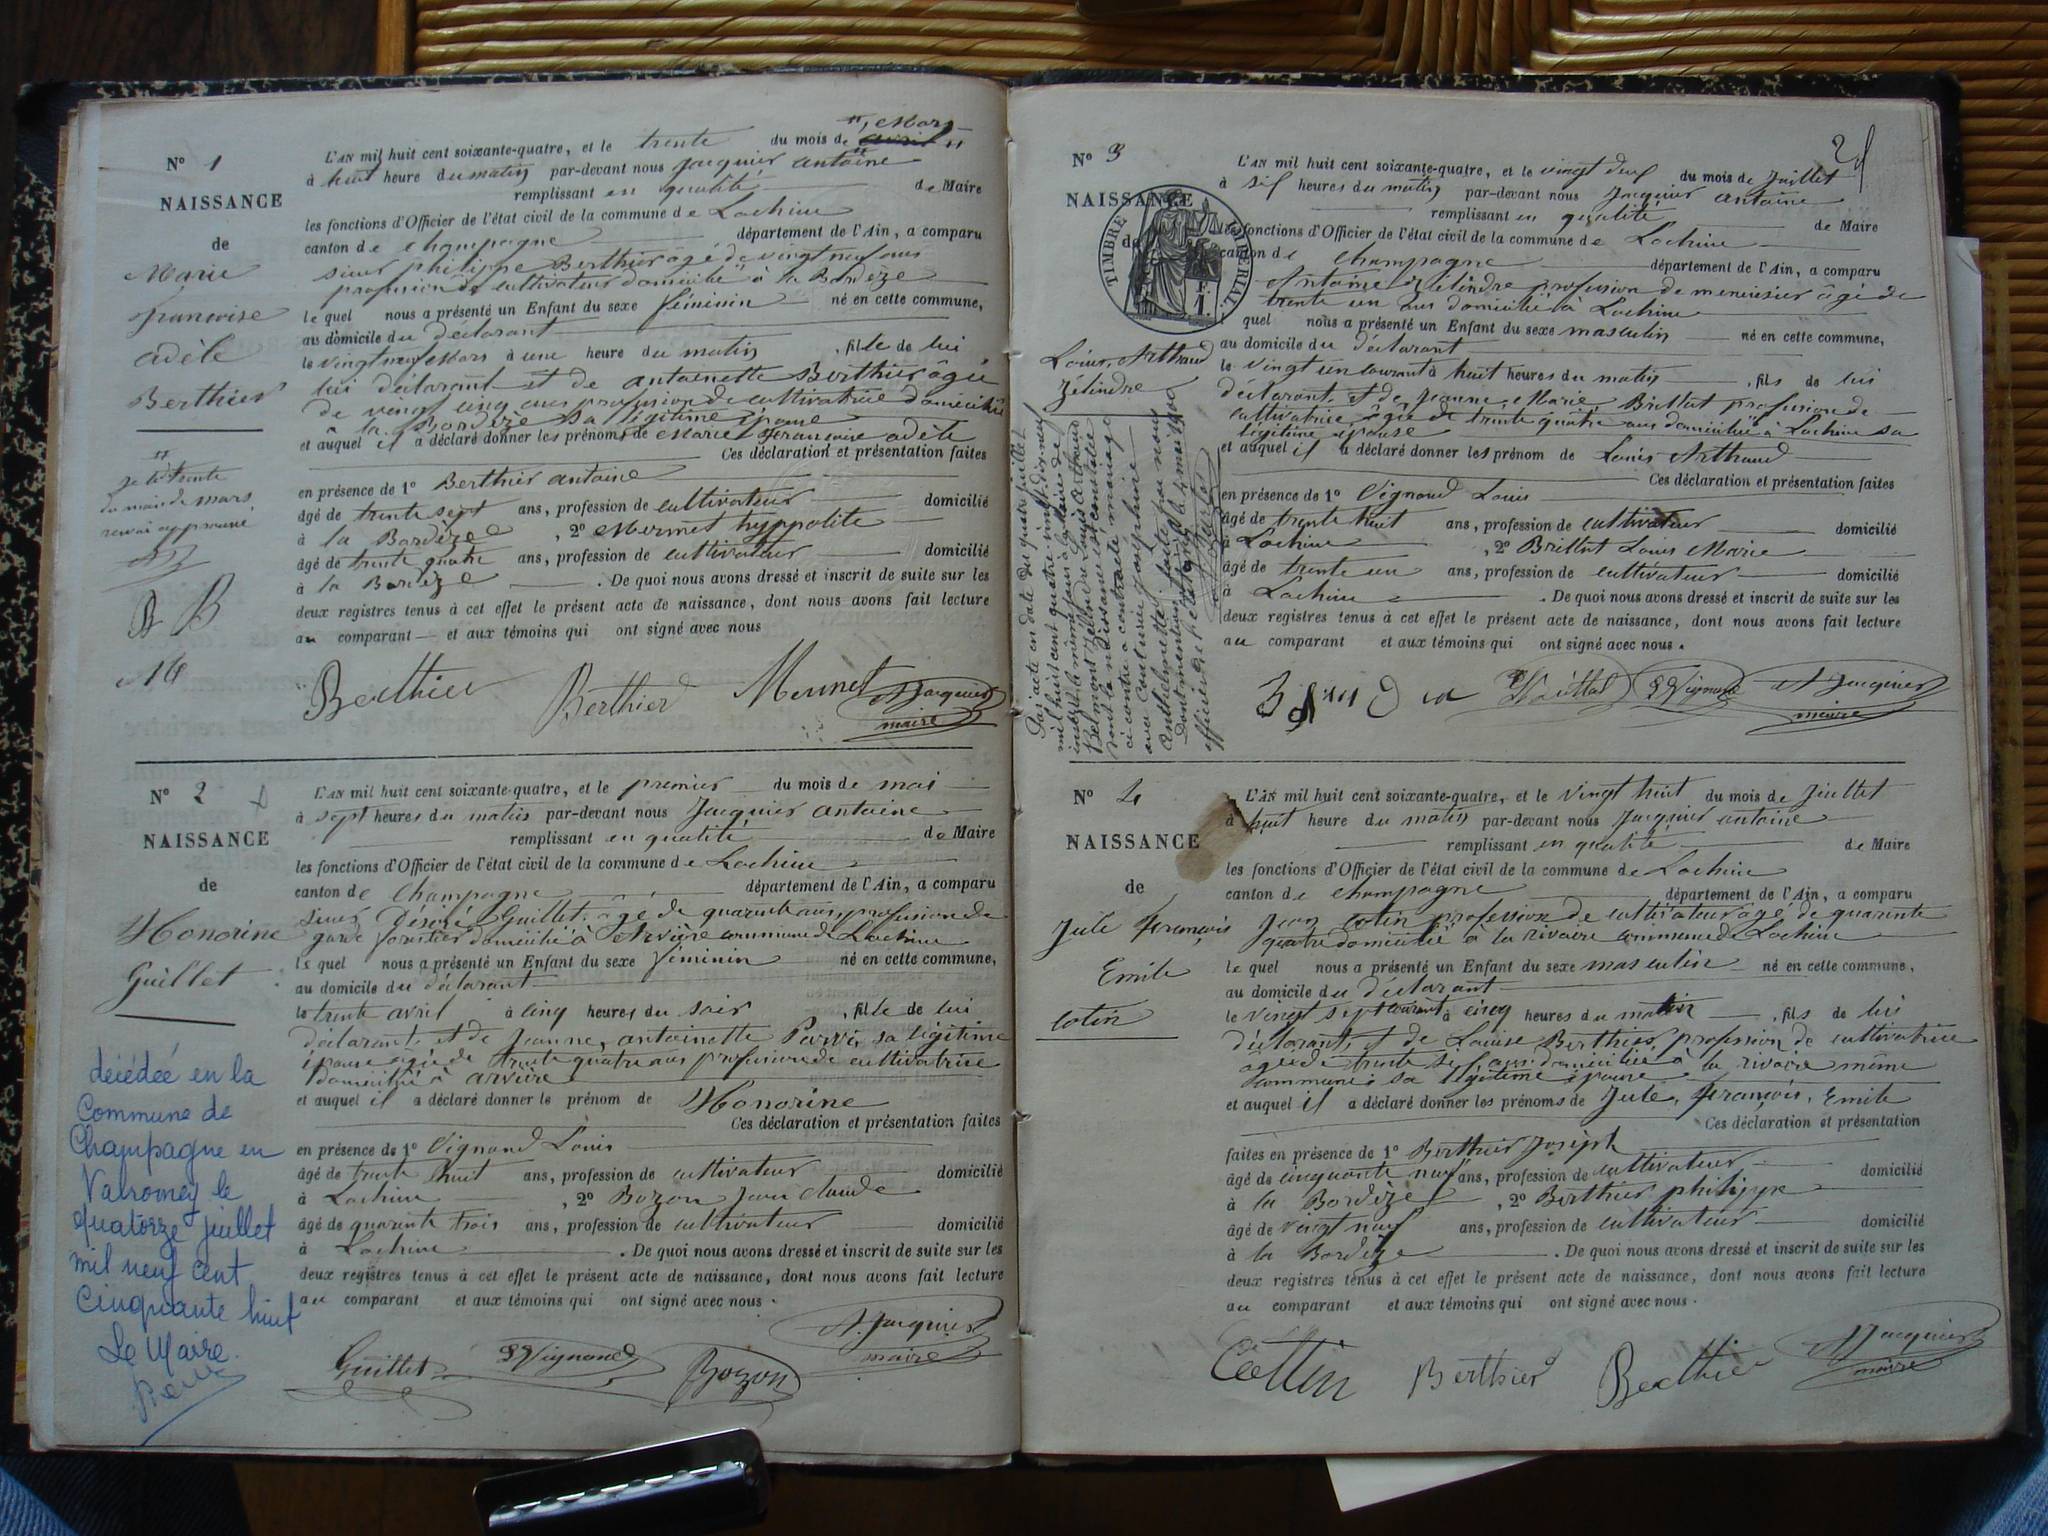 N° 1
NAISSANCE
de
Marie
françoise
adèle
Berthier
je dis trente
du mois de mars
renvoi approuvé
L'AN mil huit cent soixante-quatre, et le trente du mois de avril Mars
à huit heure du matin par-devant nous Jacquier antoine
remplissant en qualité de Maire
les fonctions d'Officier de l'état civil de la commune de Lochieu
canton de champagne département de l'Ain, a comparu
sieur philippe Berthier âgé de vingt neuf ans
profession de cultivateur domicilié à la Bordèze
le quel nous a présenté un Enfant du sexe féminin né en cette commune,
au domicile du déclarant
le vingt neuf Mars à une heure du matin, fille de lui
lui déclarant et de antoinette Berthier âgée
de vingt cinq ans profession de cultivatrice domiciliée
à la Bordèze sa légitime épouse
et auquel il a déclaré donner les prénoms de Marie françoise adèle
Ces déclaration et présentation faites
en présence de 1° Berthier antoine
âgé de trente sept ans, profession de cultivateur domicilié
à la Bordèze, 2° Mermet hyppolite
âgé de trente quatre ans, profession de cultivateur domicilié
à la Bordèze. De quoi nous avons dressé et inscrit de suite sur les
deux registres tenus à cet effet le présent acte de naissance, dont nous avons fait lecture
au comparant et aux témoins qui ont signé avec nous
Berthier Berthier Mermet A. Jacquier
maire
N° 2
NAISSANCE
de
Honorine
Guillet
décédée en la
Commune de
Champagne en
Valromey le
quatorze juillet
mil neuf cent
cinquante huit
Le Maire.
L'AN mil huit cent soixante-quatre, et le premier du mois de mai
à sept heures du matin par-devant nous Jacquier antoine
remplissant en qualité de Maire
les fonctions d'Officier de l'état civil de la commune de Lochieu
canton de champagne département de l'Ain, a comparu
sieur Désiré Guillet âgé de quarante ans, profession de
garde forestier domicilié à Arvière commune de Lochieu
le quel nous a présenté un Enfant du sexe féminin né en cette commune,
au domicile du déclarant
le trente avril à cinq heures du soir, fille de lui
déclarant et de Jeanne, antoinette sa légitime
épouse agée de trente quatre ans profession de cultivatrice
domiciliée à arvière
et auquel il a déclaré donner le prénom de Honorine
Ces déclaration et présentation faites
en présence de 1° Vignand Louis
âgé de trente huit ans, profession de cultivateur domicilié
à Lochieu, 2° Bozon Jean Claude
âgé de quarante trois ans, profession de cultivateur domicilié
à Lochieu. De quoi nous avons dressé et inscrit de suite sur les
deux registres tenus à cet effet le présent acte de naissance, dont nous avons fait lecture
au comparant et aux témoins qui ont signé avec nous.
Guillet Vignand Bozon A. Jacquier
maire
N° 3
NAISSANCE
de
TIMBRE IMPERIAL
Louis, Arthaud
Zélindre
Par acte en date du quatre juillet
mil huit cent quatre vingt dix neuf
inscrit le même jour à la Mairie de
Belmont Zélindre Louis Arthaud
dont la naissance est constatée
ci contre a contracté mariage
avec
Anthelmette
Dont mention faite par nous
officier de l'état civil
L'AN mil huit cent soixante-quatre, et le vingt deux du mois de Juillet
à six heures du matin par-devant nous Jacquier antoine
remplissant en qualité de Maire
les fonctions d'Officier de l'état civil de la commune de Lochieu
canton de champagne département de l'Ain, a comparu
Antoine Zélindre profession de menuisier âgé de
trente un ans domicilié à Lochieu
quel nous a présenté un Enfant du sexe masculin né en cette commune,
au domicile du déclarant
le vingt un courant à huit heures du matin, fils de lui
déclarant, et de Jeanne, Marie, Brillat profession de
cultivatrice âgée de trente quatre ans domiciliée à Lochieu sa
légitime épouse
et auquel il a déclaré donner les prénom de Louis Arthaud
Ces déclaration et présentation faites
en présence de 1° Vignand Louis
âgé de trente huit ans, profession de cultivateur domicilié
à Lochieu, 2° Brillat Louis Marie
âgé de trente un ans, profession de cultivateur domicilié
à Lochieu. De quoi nous avons dressé et inscrit de suite sur les
deux registres tenus à cet effet le présent acte de naissance, dont nous avons fait lecture
au comparant et aux témoins qui ont signé avec nous.
Brillat Vignand A. Jacquier
maire
N° 4
NAISSANCE
de
Jule François
Emile
Cotin
L'AN mil huit cent soixante-quatre, et le vingt huit du mois de Juillet
à huit heure du matin par-devant nous Jacquier antoine
remplissant en qualité de Maire
les fonctions d'Officier de l'état civil de la commune de Lochieu
canton de champagne département de l'Ain, a comparu
Jean Cotin profession de cultivateur âgé de quarante
quatre domicilié à la rivoire commune de Lochieu
le quel nous a présenté un Enfant du sexe masculin né en cette commune,
au domicile du déclarant
le vingt sept courant à cinq heures du matin, fils de lui
déclarant, et de Louise Berthier, profession de cultivatrice
âgée de trente six ans domiciliée à la rivoire même
commune, sa légitime épouse
et auquel il a déclaré donner les prénoms de Jule, François, Emile
Ces déclaration et présentation
faites en présence de 1° Berthier Joseph
âgé de cinquante neuf ans, profession de cultivateur domicilié
à la Bordèze, 2° Berthier philippe
âgé de vingt neuf ans, profession de cultivateur domicilié
à la Bordèze. De quoi nous avons dressé et inscrit de suite sur les
deux registres tenus à cet effet le présent acte de naissance, dont nous avons fait lecture
au comparant et aux témoins qui ont signé avec nous.
Cottin Berthier Berthier A. Jacquier
maire